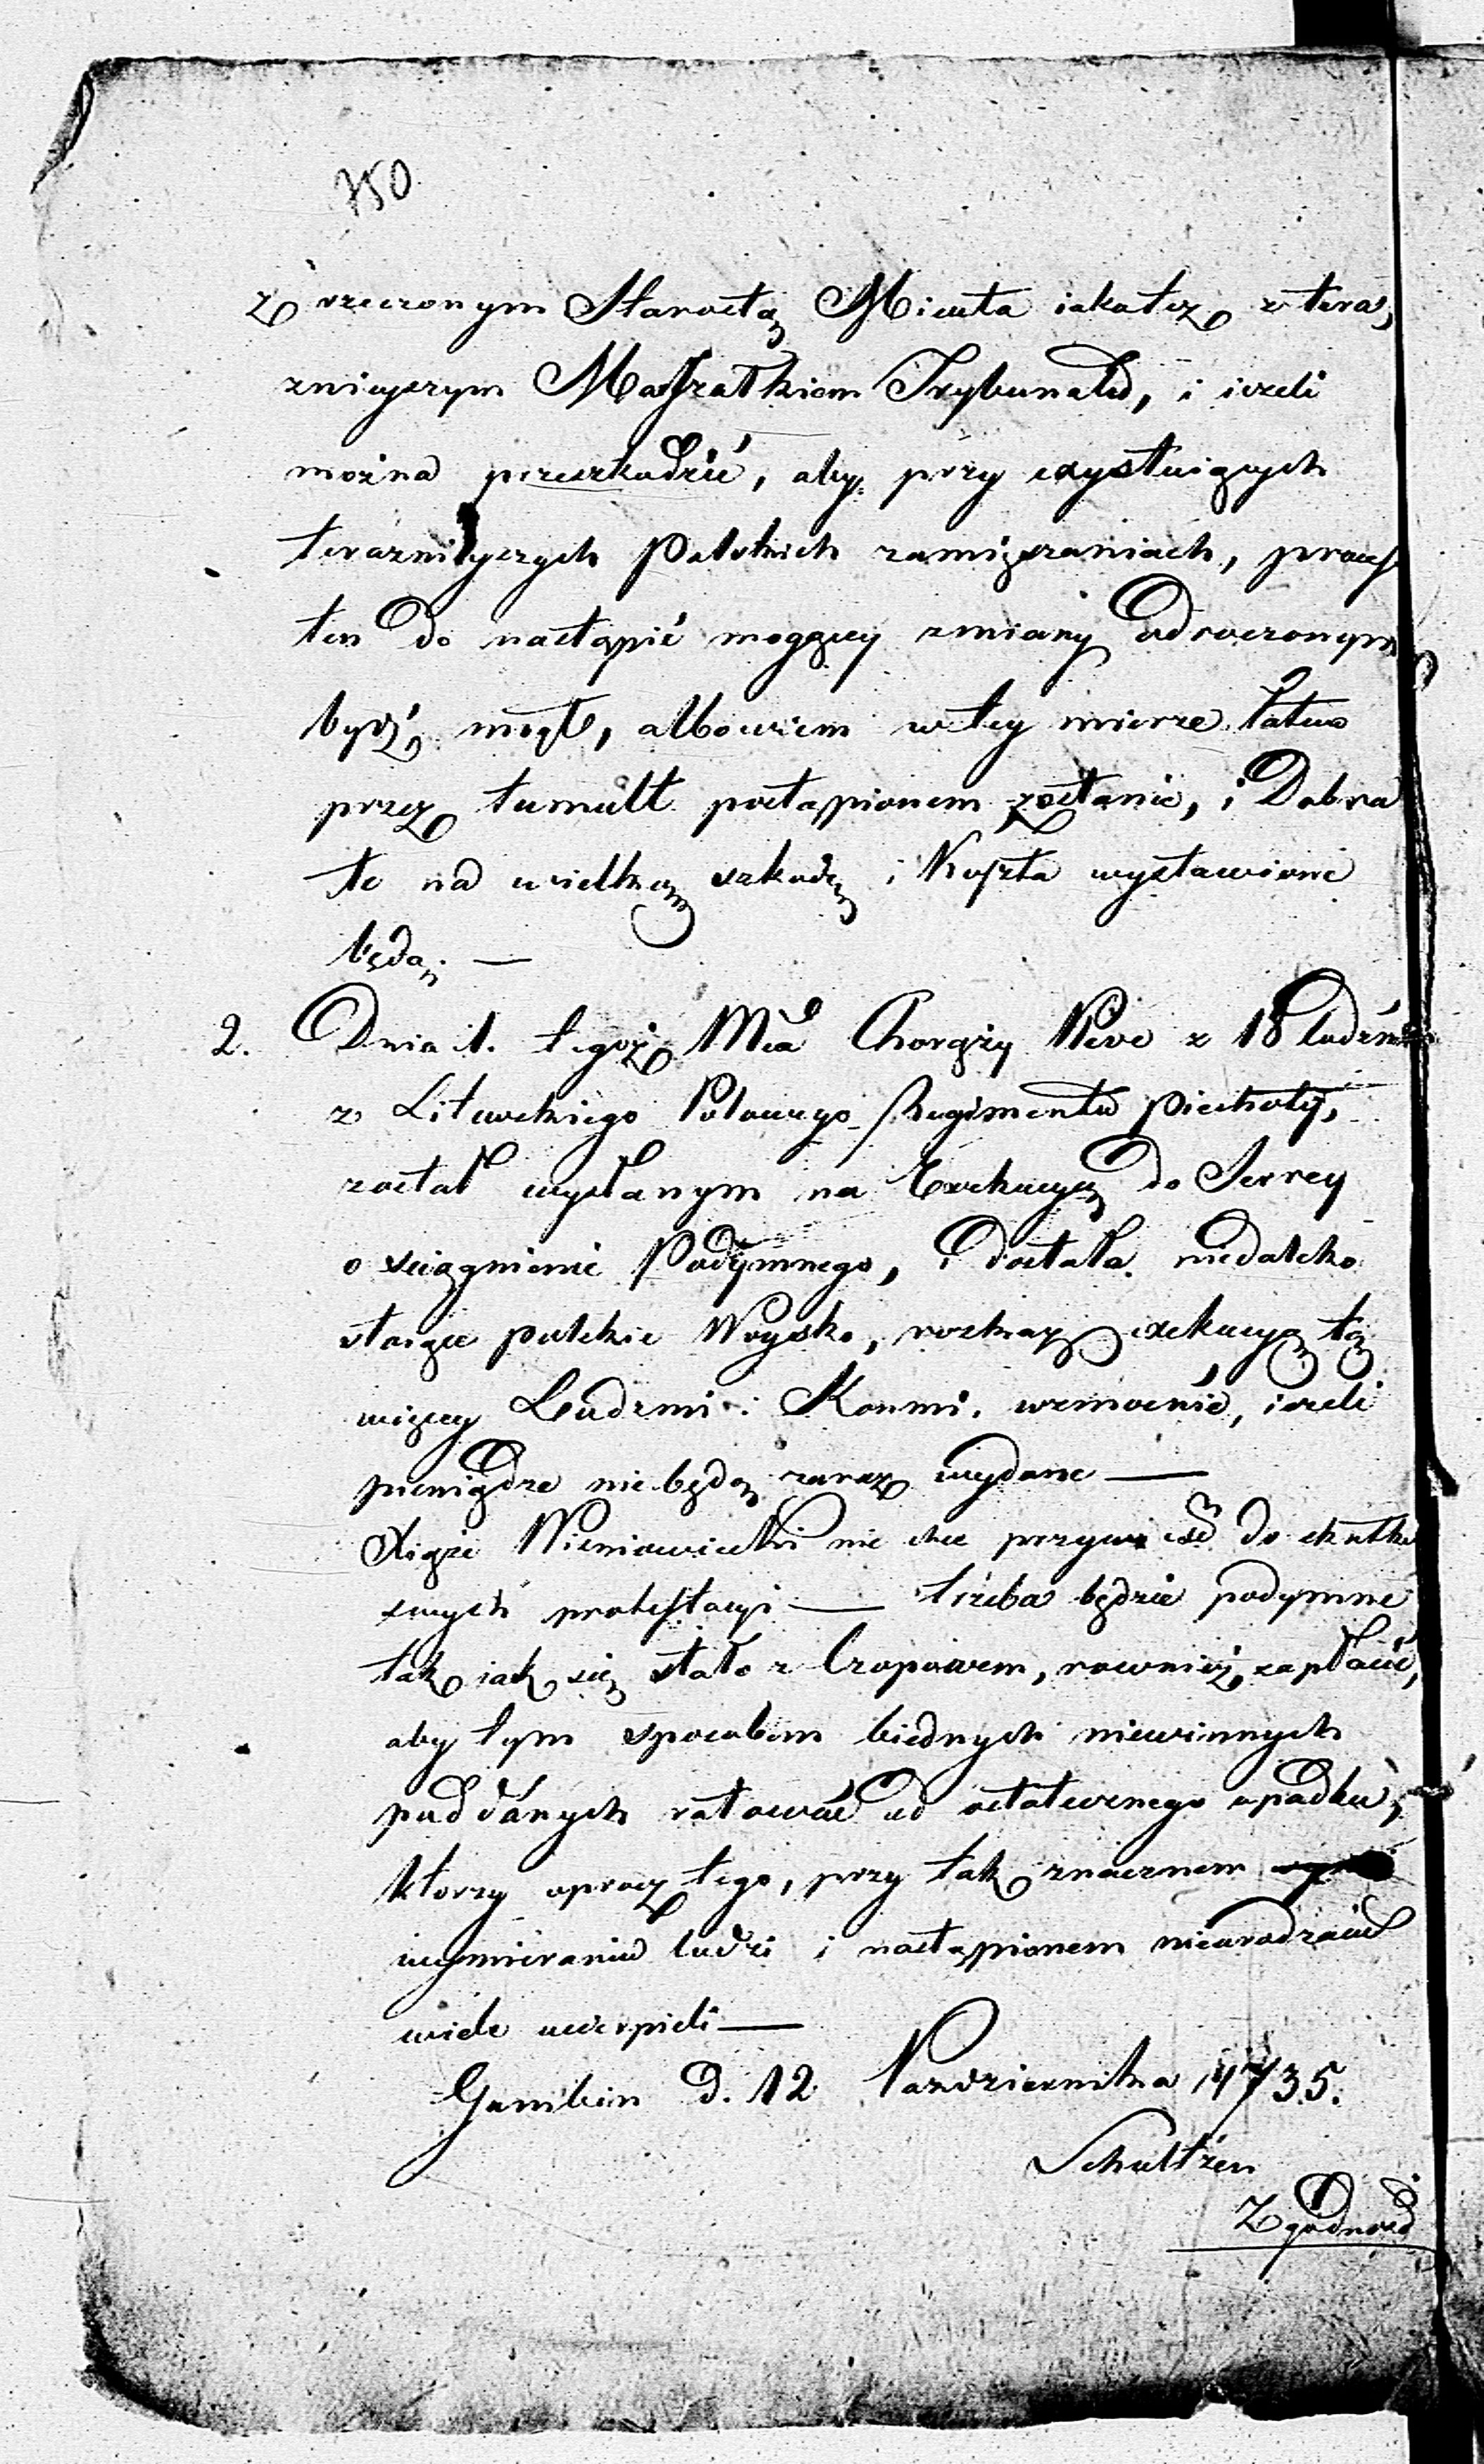 750
z rzeczonym Starostą Miasta iakotez z tera,
znieyszym Marszałkiem Trybunału, i iezeli
można przeszkodzić, aby przy exystuiących
teraznieyszych Polskich zamięszaniach, process
ten do nastąpić mogącey zmiany odroczonym
bydź mogł, albowiem w tey mierze łatwo
przez tumult postąpionem zostanie, i Dobra
te na wielką szkodę i Koszta wystawione
będą. —
2. Dnia 1. tegoż Mca Chorąży Neve z 18 ludźmi
z Litewskiego Polowego Regimentu Piechoty,
został wysłanym na Exekucyą do Serrey
o sciągnienie Podymnego, i dostała niedaleko
stoiące polskie Woysko, rozkaz exekucyą tą
więcey Ludzmi i Konmi wzmocnić, iezeli
pieniądze nie będą zaraz wydane —
Xiąże Wiesniowiecki nie chce przywieść do skutku
swych protestacyi — trzeba będzie podymne
tak iak się stało z Czopowem, rownież zapłacić,
aby tym sposobem biednych niewinnych
poddanych ratować od ostatecznego upadku,
ktorzy oprocz tego, przy tak znacznem
wymieraniu ludzi i nastąpionem nieurodzaiu
wiele ucierpieli —
Gumbin D. 12 Pazdziernika 1735.
Schultzen
Zgodność